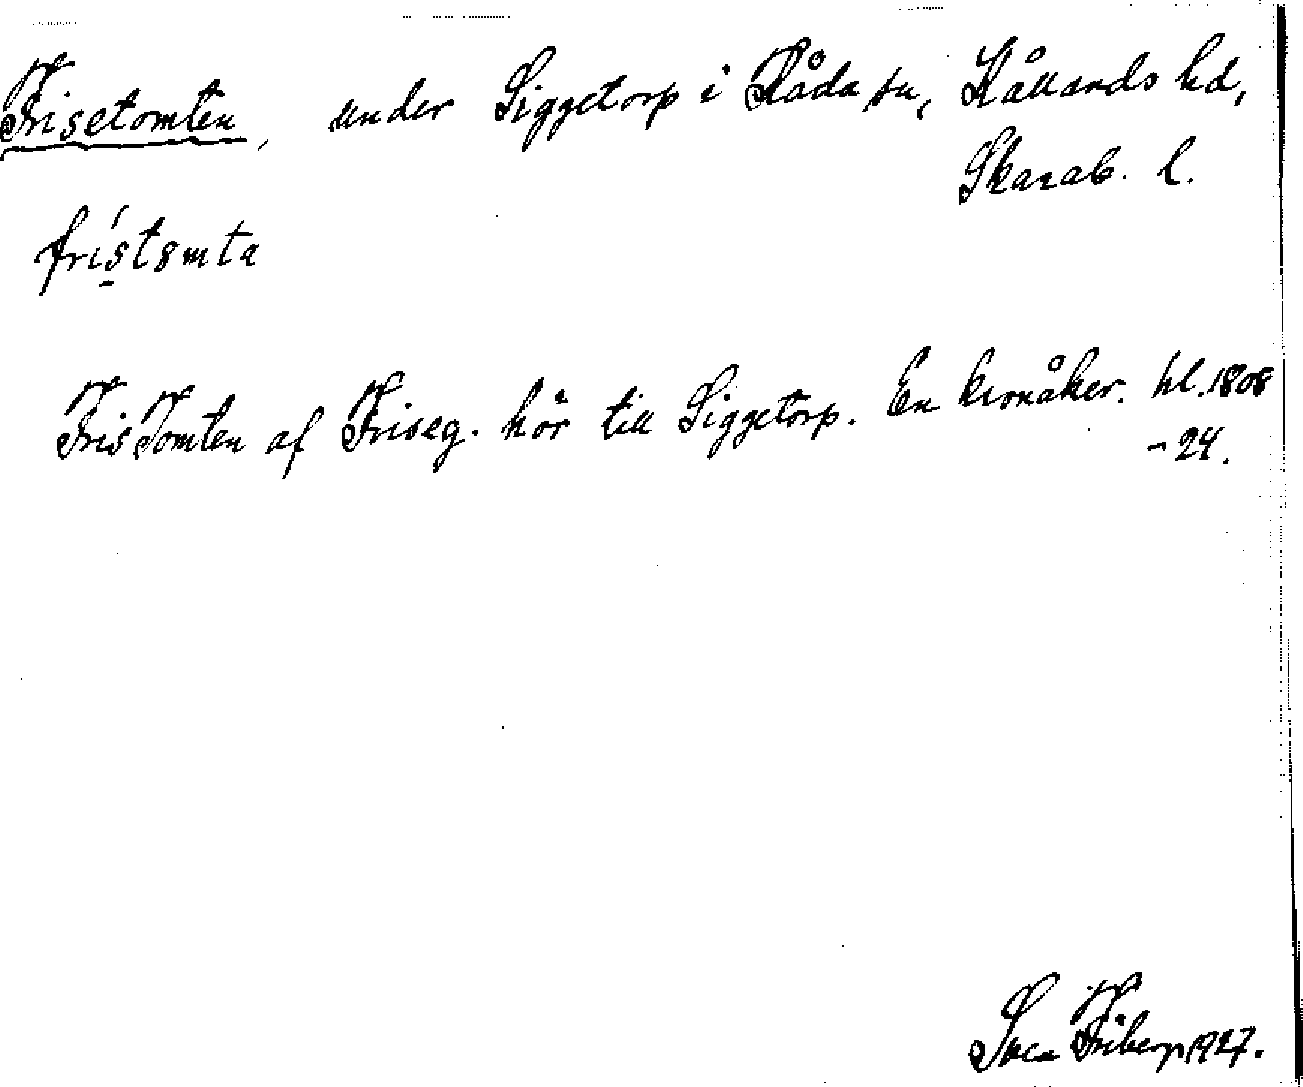 Frisetomten, under Siggetorp i Råda sn, Kållands hd,
Skarab. l.
fristomta
FrisTomten af Friseg. hör till Siggetorp. En kronåker. hl. 1808
-24.
Friberg 1927.